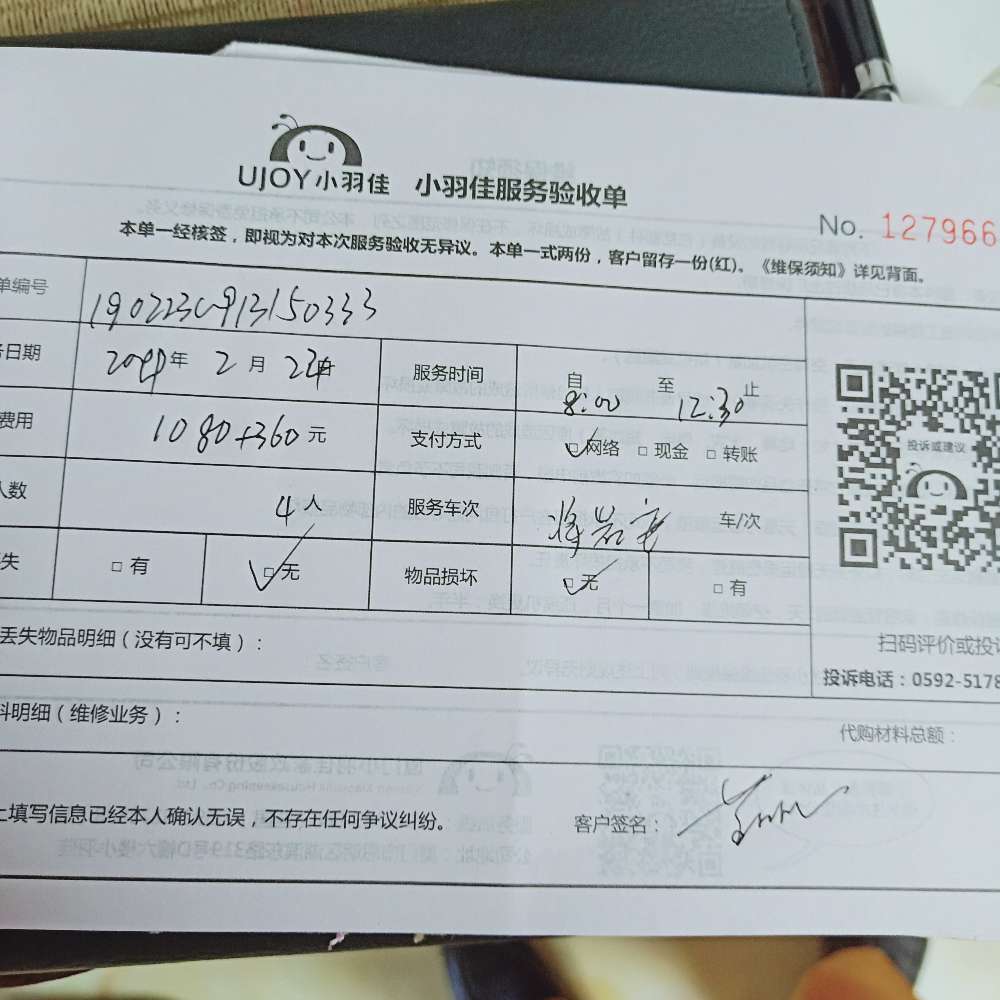 UJOY小羽佳 小羽佳服务验收单
No. 127966
本单一经核签，即视为对本次服务验收无异议。本单一式两份，客户留存一份(红)。《维保须知》详见背面。
单编号 190223C913150333
务日期 2019年 2月 23日 服务时间 自 8:00 至 12:30 止
费用 1080+360元 支付方式 ☑网络 □现金 □转账
人数 4人 服务车次 车/次
失 □有 ☑无 物品损坏 ☑无 □有
投诉或建议
丢失物品明细（没有可不填）：
扫码评价或投诉
投诉电话：0592-5178
料明细（维修业务）：
代购材料总额：
上填写信息已经本人确认无误，不存在任何争议纠纷。 客户签名：